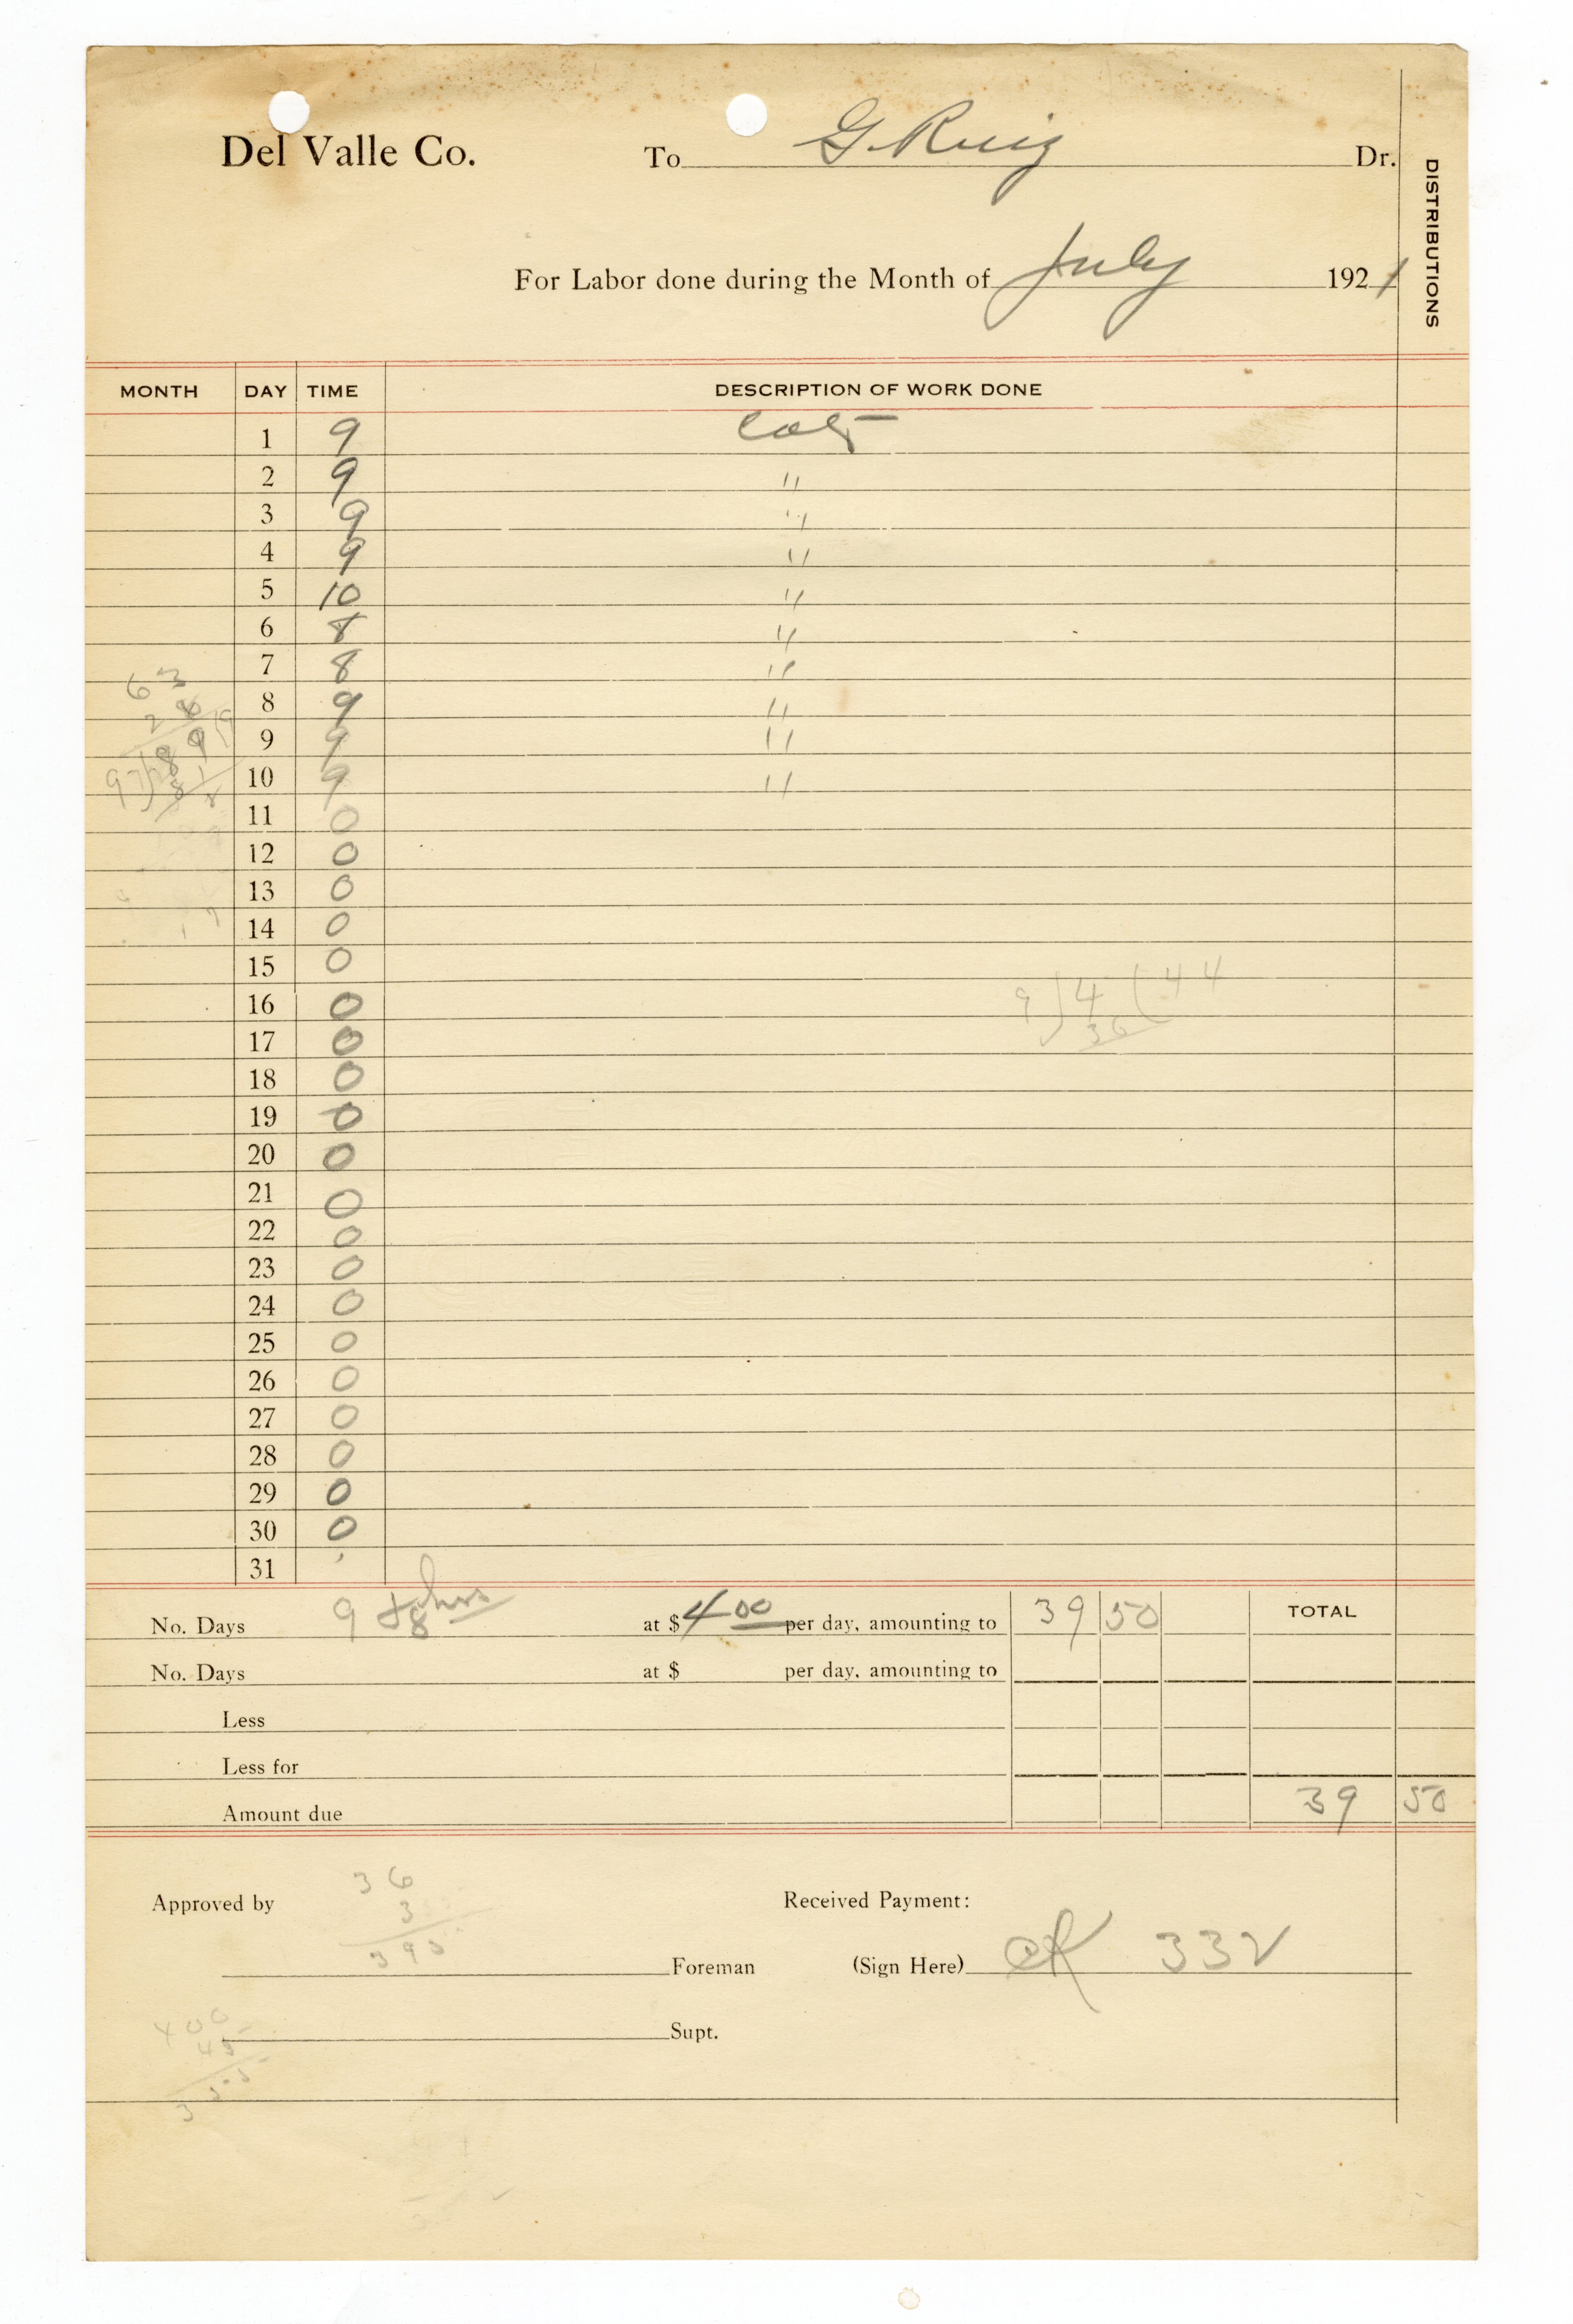 Del Valle Co. To G. Ruiz Dr.
DISTRIBUTIONS
For Labor done during the Month of July 1921
MONTH DAY TIME DESCRIPTION OF WORK DONE
1 9
2 9 "
3 9 "
4 9 "
5 10 "
6 8 "
7 8 "
8 9 "
9 9 "
10 9 "
11 0
12 0
13 0
14 0
15 0
16 0
17 0
18 0
19 0
20 0
21 0
22 0
23 0
24 0
25 0
26 0
27 0
28 0
29 0
30 0
31
63
9)4(44
36
No. Days 9 + 8 hrs at $ 4 00 per day, amounting to 39 50 TOTAL
No. Days at $ per day, amounting to
Less
Less for
Amount due 39 50
Approved by Received Payment:
36
3
Foreman (Sign Here) 332
Supt.
400